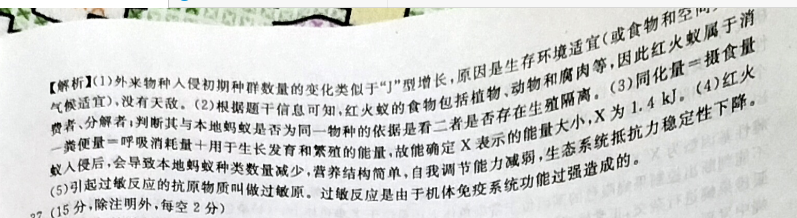 【解析】(1)外来物种入侵初期种群数量的变化类似于“J”型增长,原因是生存环境适宜(或食物和空间
气候适宜),没有天敌。(2)根据题干信息可知,红火蚁的食物包括植物、动物和腐肉等,因此红火蚁属于消
费者、分解者;判断其与本地蚂蚁是否为同一物种的依据是看二者是否存在生殖隔离。(3)同化量=摄食量
-粪便量=呼吸消耗量+用于生长发育和繁殖的能量,故能确定 X 表示的能量大小,X 为 1.4 kJ。(4)红火
蚁入侵后,会导致本地蚂蚁种类数量减少,营养结构简单,自我调节能力减弱,生态系统抵抗力稳定性下降。
(5)引起过敏反应的抗原物质叫做过敏原。过敏反应是由于机体免疫系统功能过强造成的。
37.(15 分,除注明外,每空 2 分)